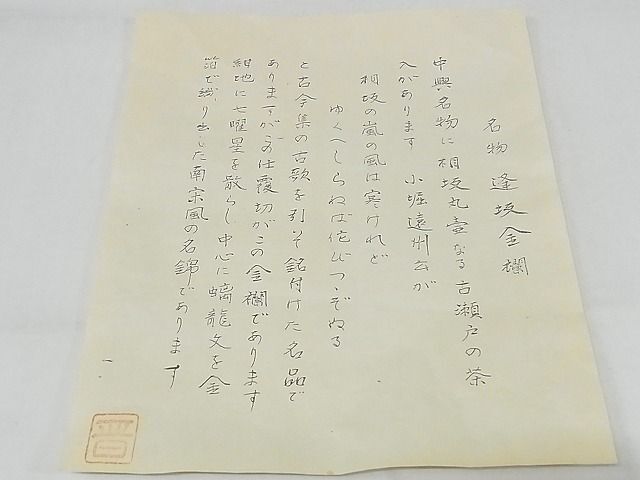 名物 逢坂金襴
中興名物に相坂丸壷なる古瀬戸の茶
入があります 小堀遠州公が
相坂の嵐の風は寒けれど
ゆくへしらねば侘びつゝぞぬる
と古今集の古歌を引いて銘付けた名品で
ありますがこの仕覆切がこの金襴であります
紺地に七曜星を散らし中心に螭龍文を金
箔で織り出した南宋風の名錦であります